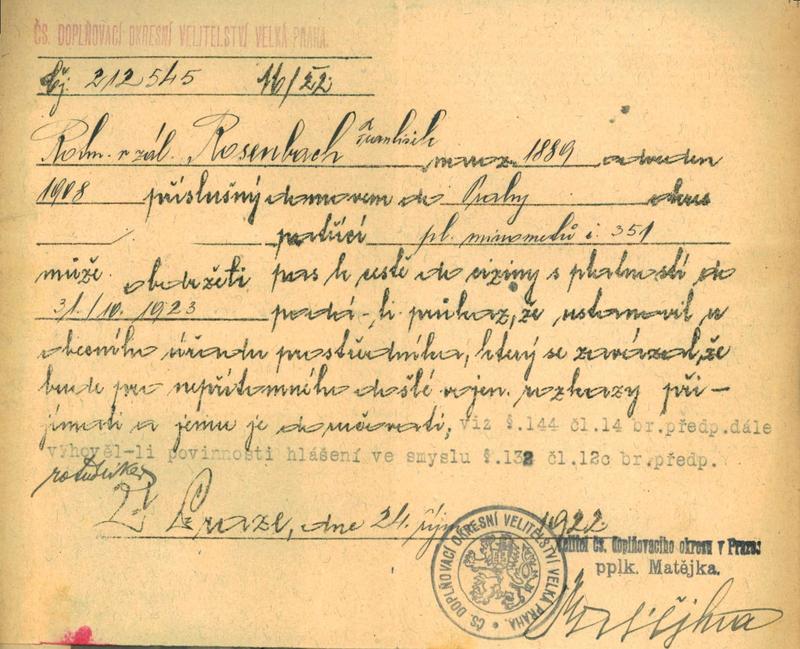 ČS. DOPLŇOVACÍ OKRESNÍ VELITELSTVÍ VELKÁ PRAHA.
Čj. 212545 M/22
Rotm. v zál. Rosenbach František naroz. 1889 odveden
1908 příslušný domovem do Prahy okres
patřící pl. minometů č. 351
může obdržeti pas k cestě do ciziny s platností do
31./10. 1923 podá-li průkaz, že ustanovil u
obecního úřadu prostředníka, který se zavázal, že
bude pro nepřítomného došlé vojen. rozkazy při-
jímati a jemu je doručovati, viz §.144 čl.14 br.předp.dále
vyhověl-li povinnosti hlášení ve smyslu §.132 čl.12c br.předp.
V Praze, dne 24. říj 1922
Velitel čs. doplňovacího okresu v Praze:
pplk. Matějka.
Matějka
ČS. DOPLŇOVACÍ OKRESNÍ VELITELSTVÍ VELKÁ PRAHA.